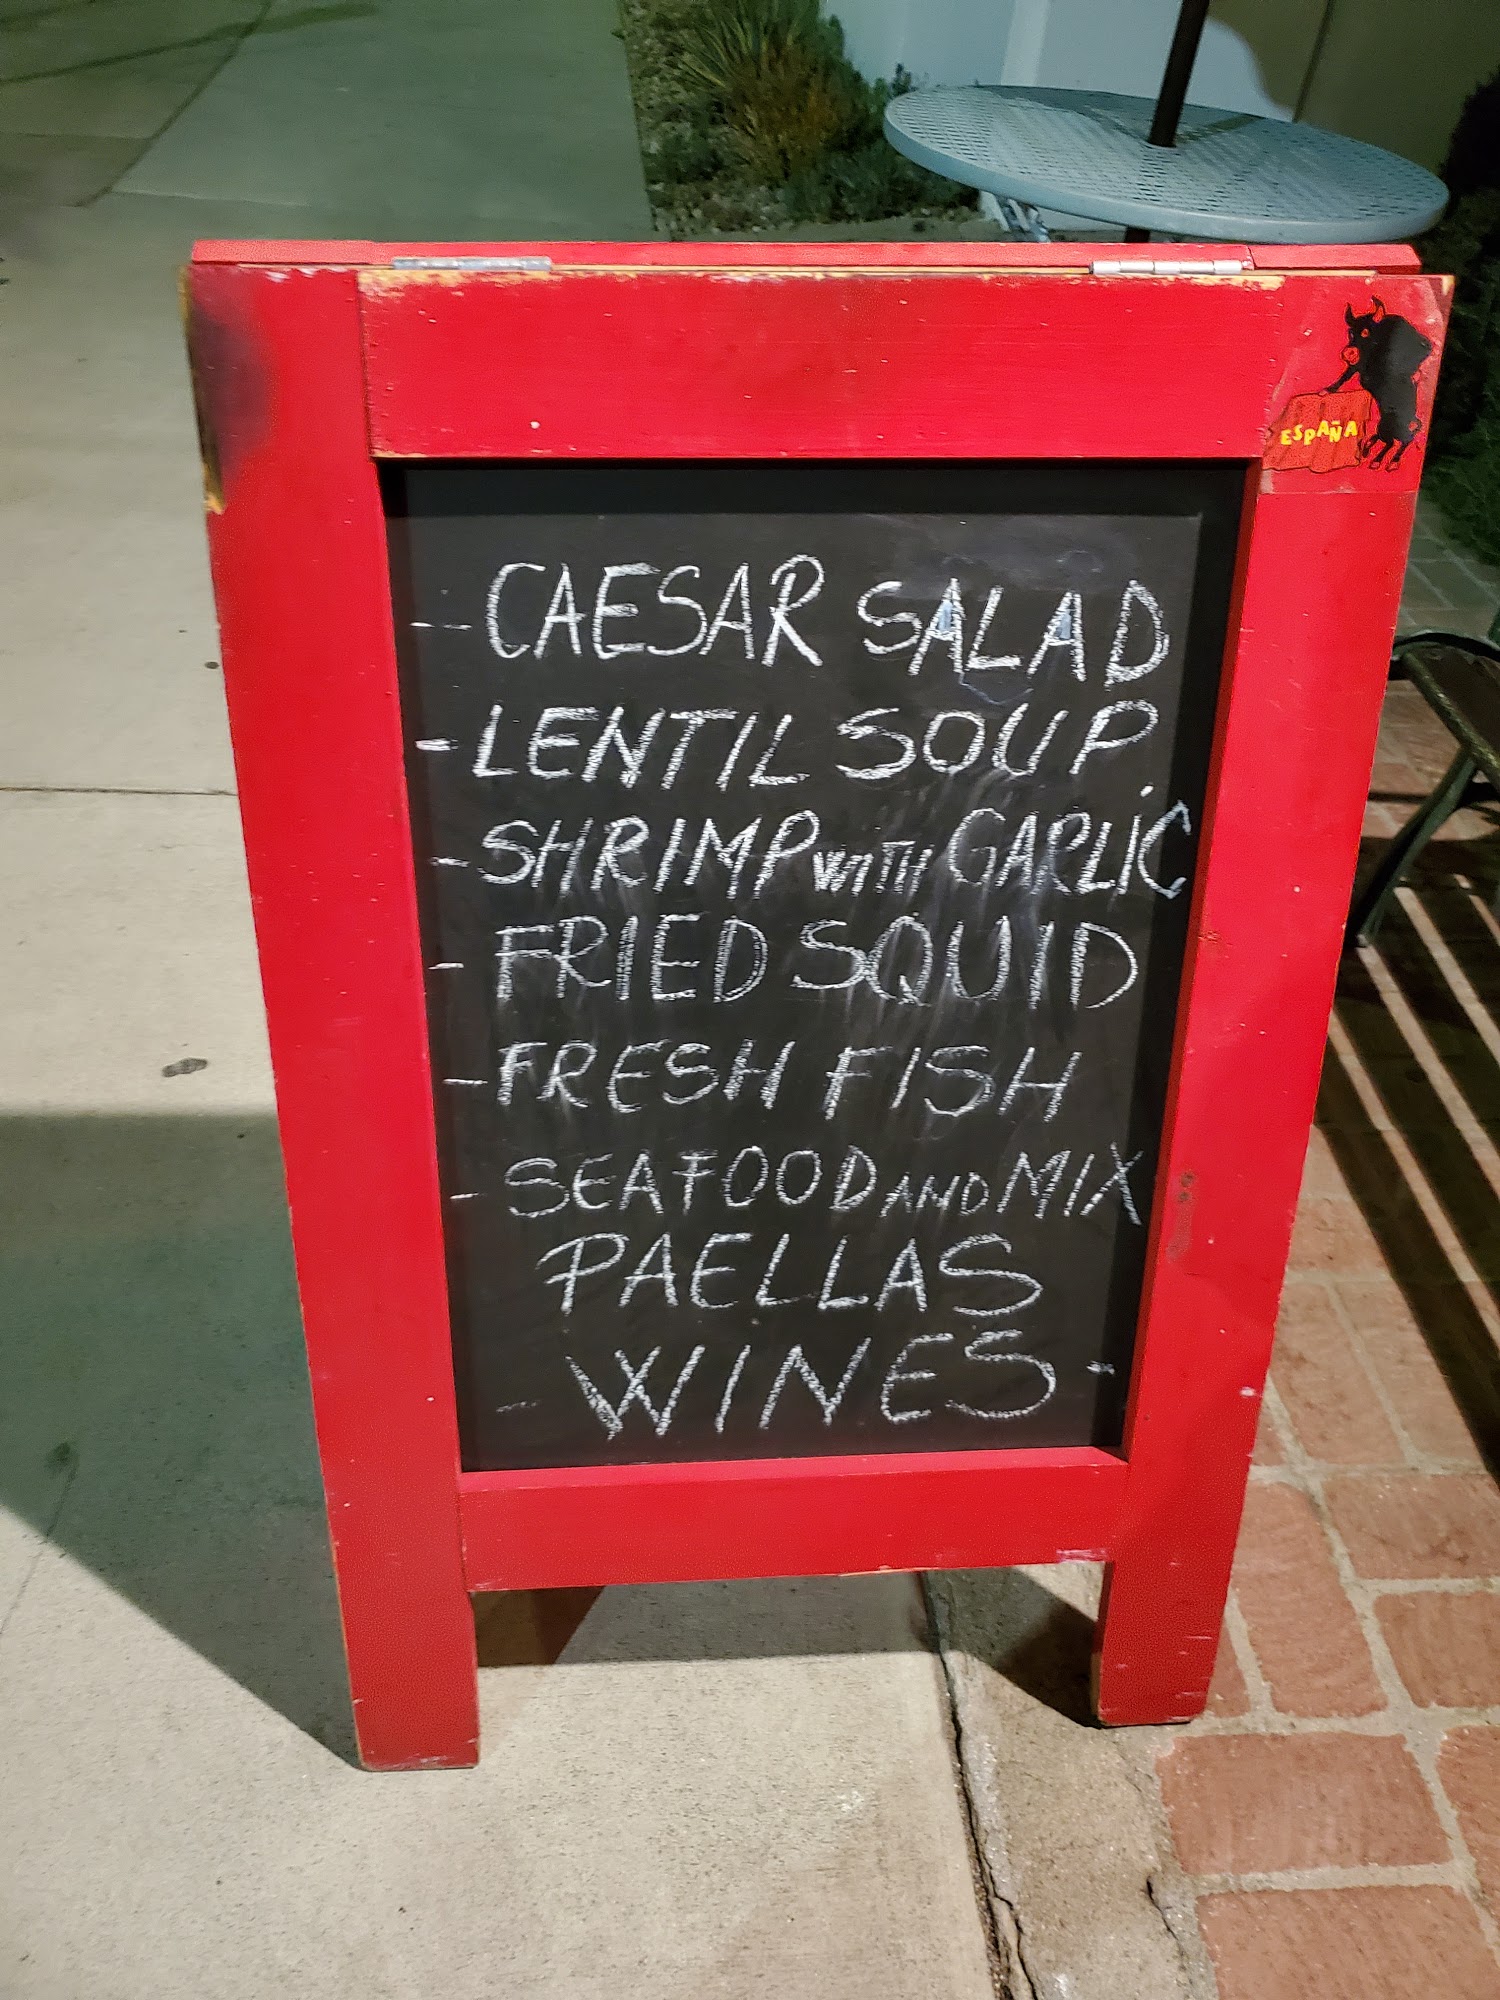 ESPAÑA
- CAESAR SALAD
- LENTIL SOUP.
- SHRIMP WITH GARLIC
- FRIED SQUID
- FRESH FISH
- SEAFOOD AND MIX
PAELLAS
- WINES -